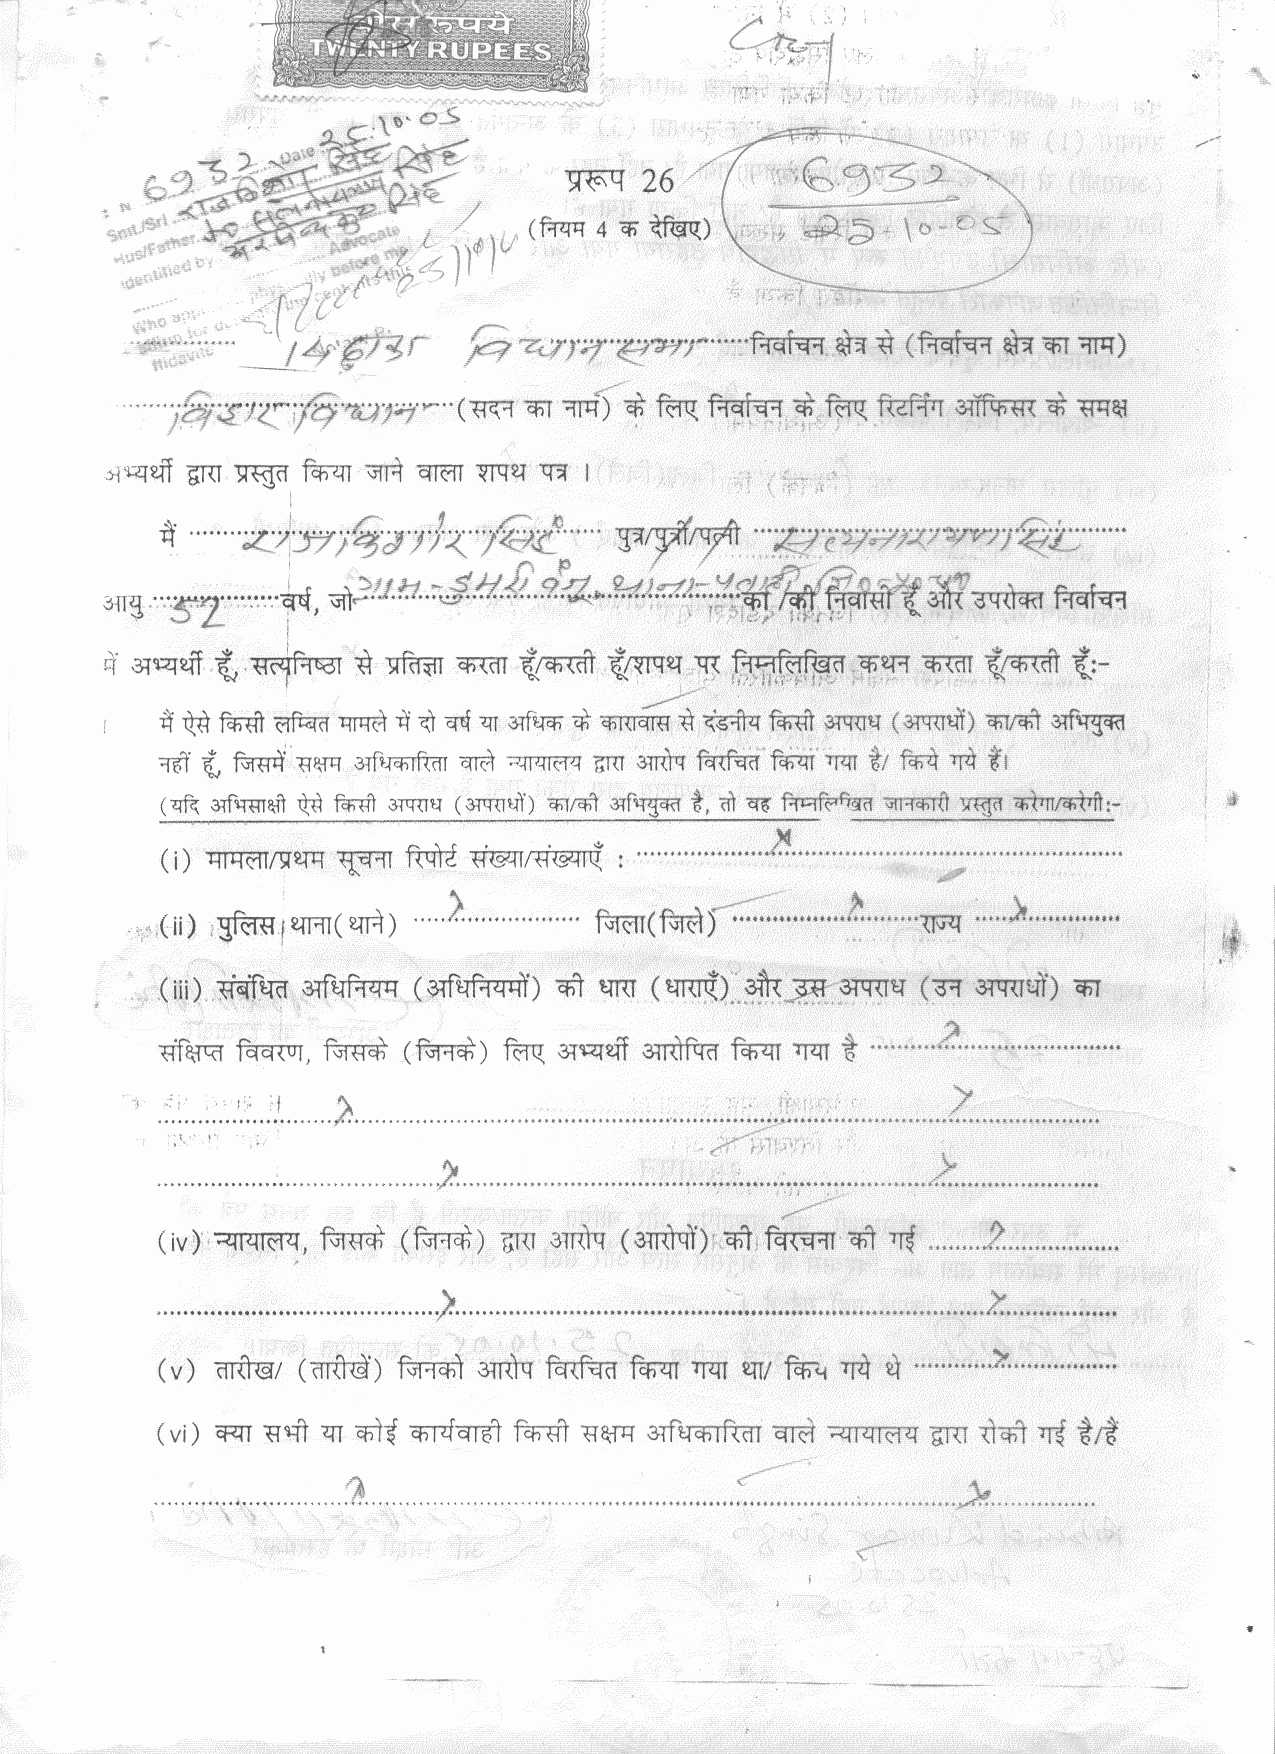 बीस रुपये
TWENTY RUPEES
6932 Date 25.10.05
Smt./Sri राज किशोर सिंह
Hus/Father सत्यनारायण सिंह
Identified by अरविन्द कुमार सिंह
Advocate
before me
Who
this
ffidavits
प्ररूप 26
6932
25-10-05
(नियम 4 क देखिए)
14 ढाका विधान सभा निर्वाचन क्षेत्र से (निर्वाचन क्षेत्र का नाम)
बिहार विधान (सदन का नाम) के लिए निर्वाचन के लिए रिटर्निंग ऑफिसर के समक्ष
अभ्यर्थी द्वारा प्रस्तुत किया जाने वाला शपथ पत्र ।
मैं राजकिशोर सिंह पुत्र/पुत्री/पत्नी सत्यनारायण सिंह
आयु 52 वर्ष, जो ग्राम - डुमरी थाना - का /की निवासी हूँ और उपरोक्त निर्वाचन
में अभ्यर्थी हूँ, सत्यनिष्ठा से प्रतिज्ञा करता हूँ/करती हूँ/शपथ पर निम्नलिखित कथन करता हूँ/करती हूँ:-
मैं ऐसे किसी लम्बित मामले में दो वर्ष या अधिक के कारावास से दंडनीय किसी अपराध (अपराधों) का/की अभियुक्त
नहीं हूँ, जिसमें सक्षम अधिकारिता वाले न्यायालय द्वारा आरोप विरचित किया गया है/ किये गये हैं।
(यदि अभिसाक्षी ऐसे किसी अपराध (अपराधों) का/की अभियुक्त है, तो वह निम्नलिखित जानकारी प्रस्तुत करेगा/करेगी:-
(i) मामला/प्रथम सूचना रिपोर्ट संख्या/संख्याएँ : x
(ii) पुलिस थाना(थाने) x जिला(जिले) x राज्य x
(iii) संबंधित अधिनियम (अधिनियमों) की धारा (धाराएँ) और उस अपराध (उन अपराधों) का
संक्षिप्त विवरण, जिसके (जिनके) लिए अभ्यर्थी आरोपित किया गया है x
x x
x x
(iv) न्यायालय, जिसके (जिनके) द्वारा आरोप (आरोपों) की विरचना की गई x
x x
(v) तारीख/ (तारीखें) जिनको आरोप विरचित किया गया था/ किये गये थे x
(vi) क्या सभी या कोई कार्यवाही किसी सक्षम अधिकारिता वाले न्यायालय द्वारा रोकी गई है/हैं
x x